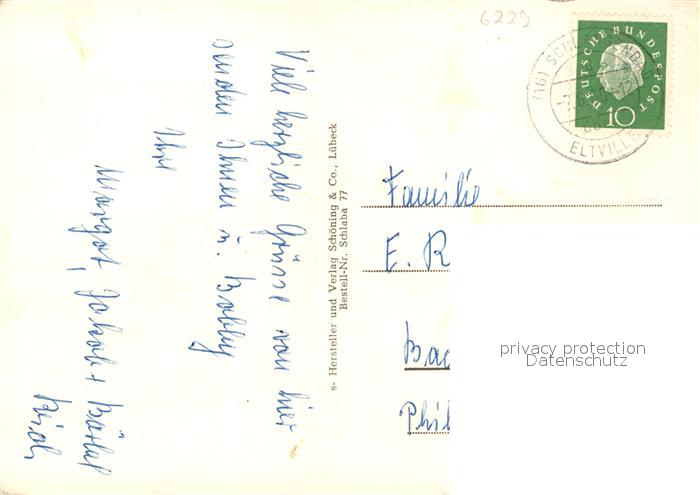 6229
DEUTSCHE BUNDESPOST
10
(16) SCHL
ELTVILLE
Viele herzliche Grüsse von hier
senden Ihnen u. Bobby
Ihre
Margot, Jakob +
s- Hersteller und Verlag Schöning & Co., Lübeck
Bestell-Nr. Schlaba 77
Familie
E. R
Bad
Phil
privacy protection
Datenschutz